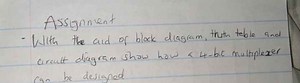 Assignment
- With the aid of block diagram, truth table and
circuit diagram show how a 4-bit multiplexer
can be designed